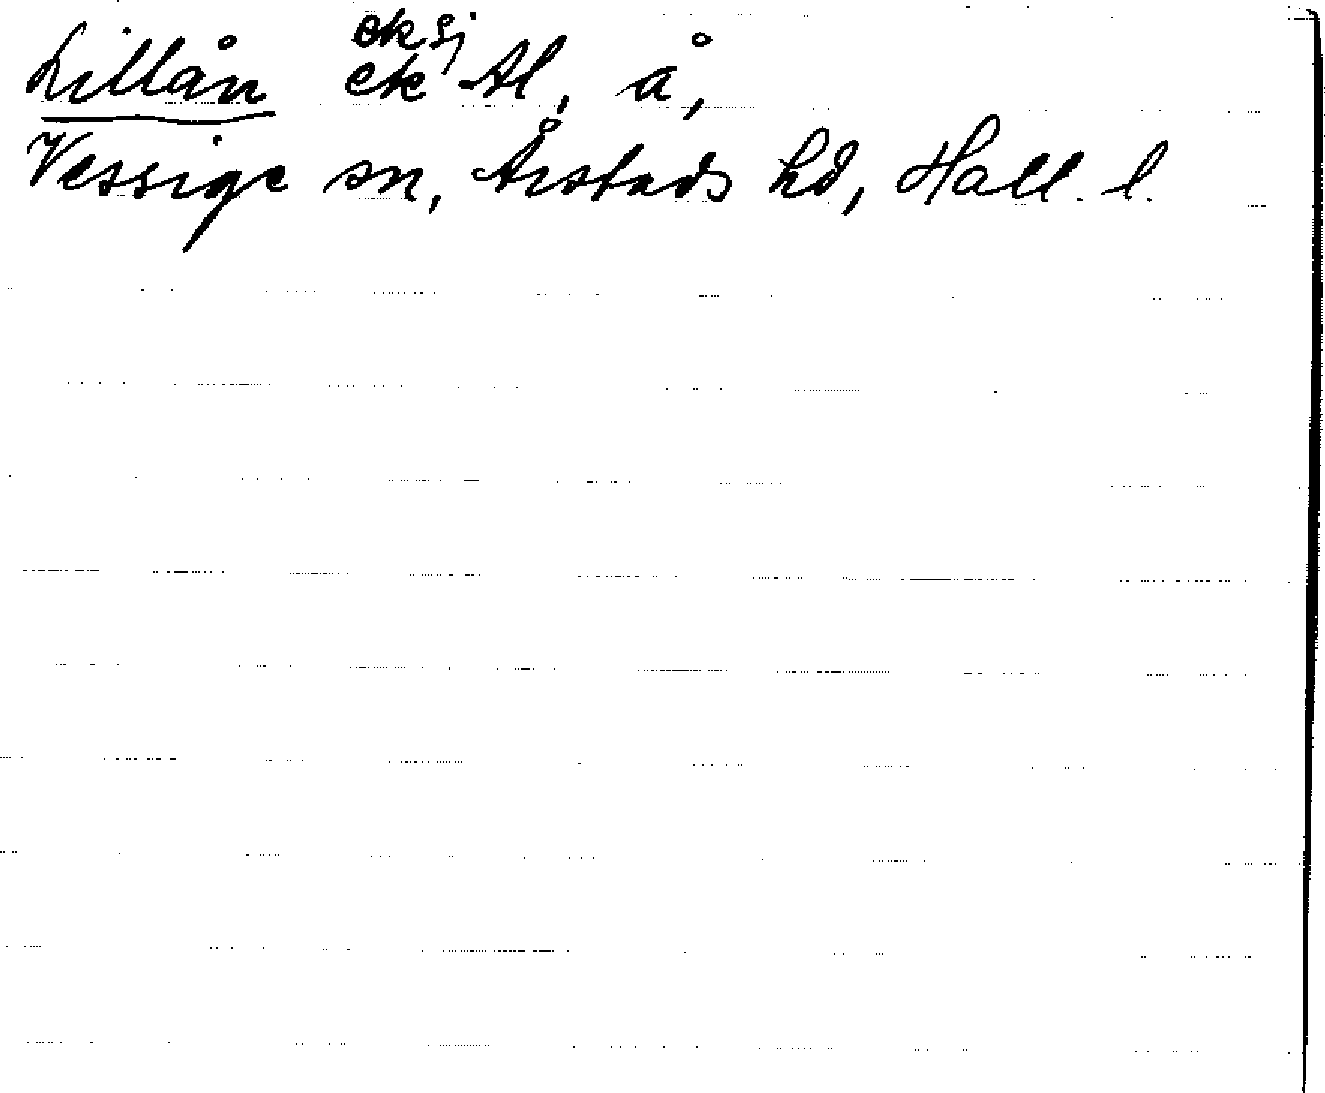 ek sj
Lillån ek Al, å,
Vessige sn, Årstads hd, Hall. l.